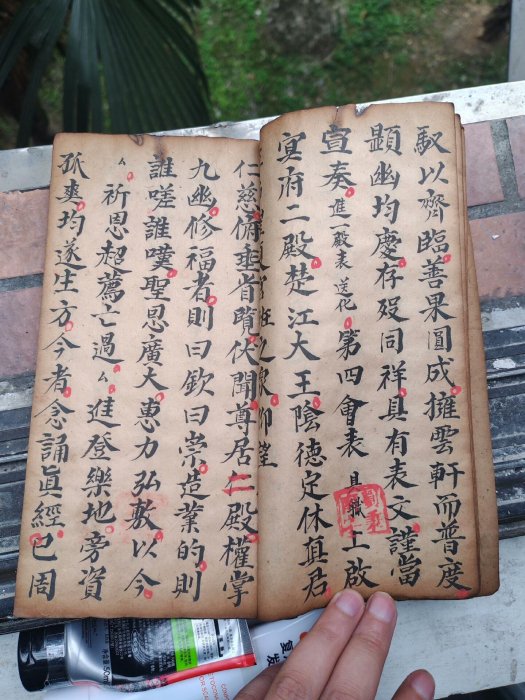 馭以齊臨善果圓成擁雲軒而普度
顯幽均慶存歿同祥具有表文謹當
宣奏進一殿表送化第四會表具職上啟
冥府二殿楚江大王陰德定休真君
仁慈俯垂省覽伏聞尊居二殿權掌
九幽修福者則曰欽曰崇造業的則
誰嗟誰嘆聖恩廣大惠力弘敷以今
厶祈恩超薦亡過厶進登樂地旁資
孤爽均遂生方今者念誦真經已周